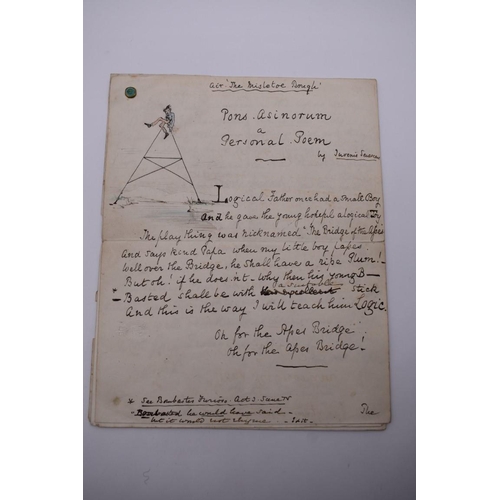 Air "The Misletoe Bough"
Pons. Asinorum
a
Personal. Poem
by Juvenis
Logical Father once had a small Boy
And he gave the young hopeful a logical Toy
The play thing was nicknamed "The Bridge of the Apes
And says kind Papa when my little boy
Well over the Bridge, he shall have a ripe Plum!
But oh! if he does n't - why then his young B—
a suitable
* Basted shall be with excellent stick
And this is the way I will teach him Logic.
Oh for the Apes Bridge
Oh for the Apes Bridge!
* See Bombastes Furioso Act 3 Scene IV
"Bombasted he would have said -
but it would not rhyme.
The